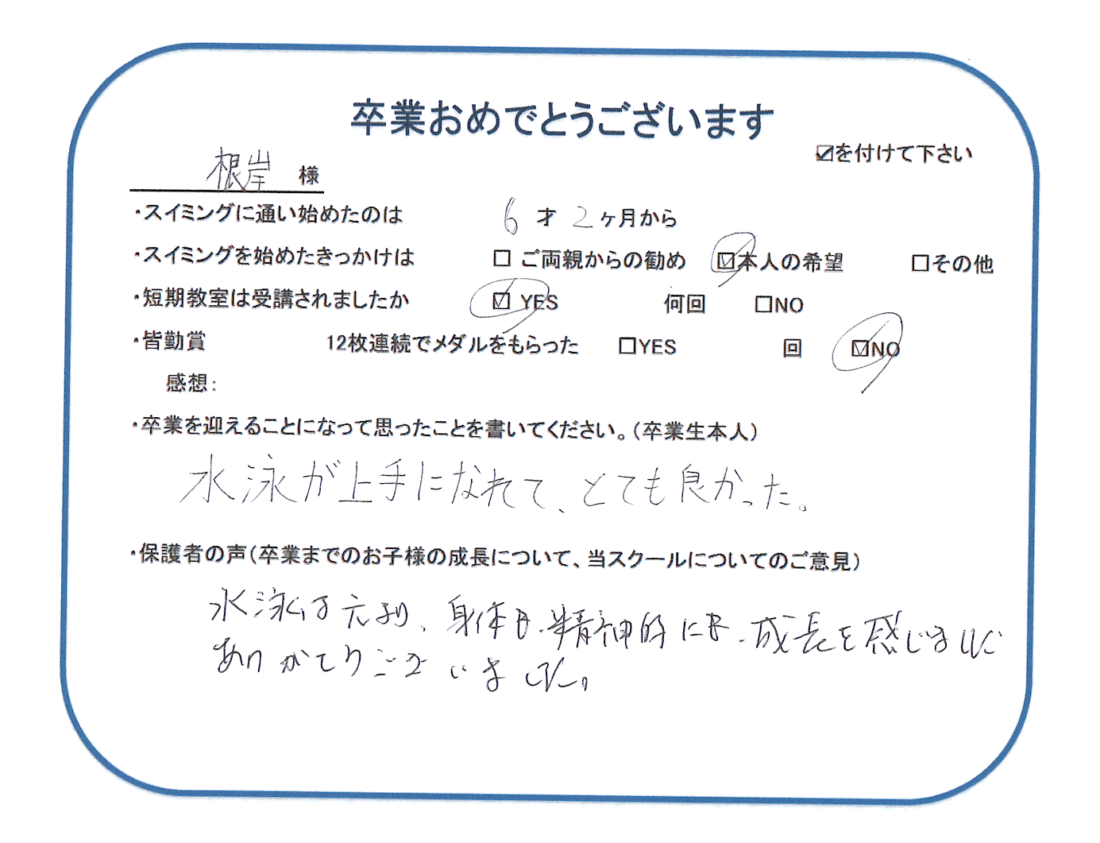 卒業おめでとうございます
☑を付けて下さい
根岸 様
・スイミングに通い始めたのは 6 才 2 ヶ月から
・スイミングを始めたきっかけは □ ご両親からの勧め ☑本人の希望 □その他
・短期教室は受講されましたか ☑ YES 何回 □NO
・皆勤賞 12枚連続でメダルをもらった □YES 回 ☑NO
感想:
・卒業を迎えることになって思ったことを書いてください。(卒業生本人)
水泳が上手になれて、とても良かった。
・保護者の声(卒業までのお子様の成長について、当スクールについてのご意見)
水泳は元より、身体も・精神的にも・成長を感じました
ありがとうございました。